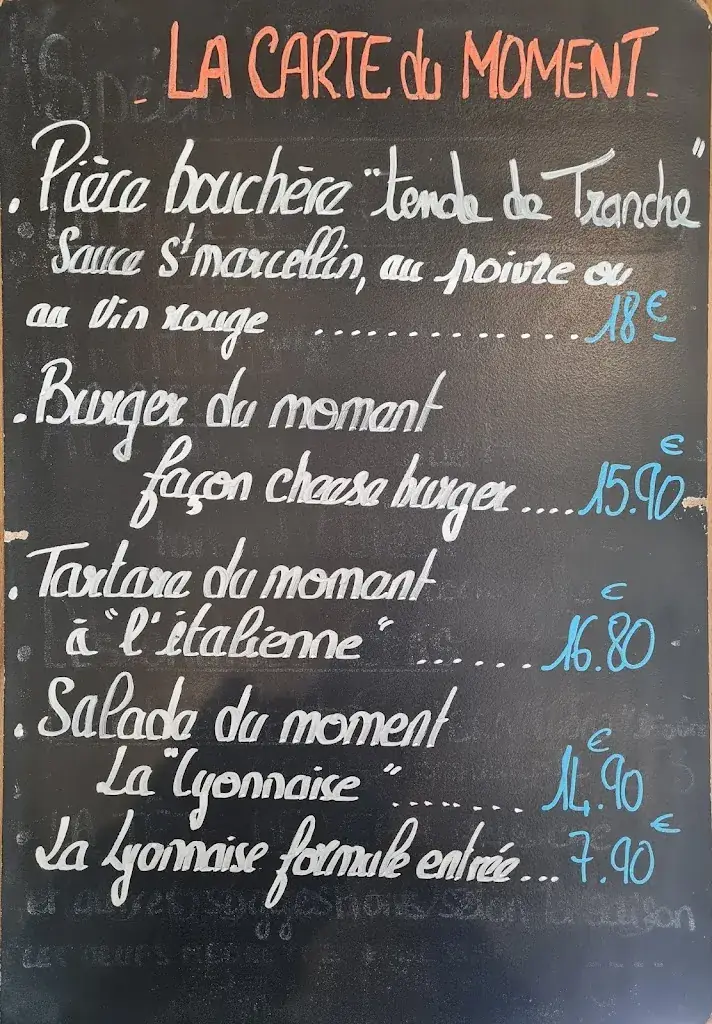 - LA CARTE du MOMENT -
. Pièce bouchère "tende de Tranche"
Sauce St marcellin, au poivre ou
au Vin rouge .............. 18€
. Burger du moment
façon cheese burger .... 15.90€
. Tartare du moment
à "l'italienne" ....... 16.80€
. Salade du moment
La "Lyonnaise" ........ 14.90€
La Lyonnaise formule entrée... 7.90€